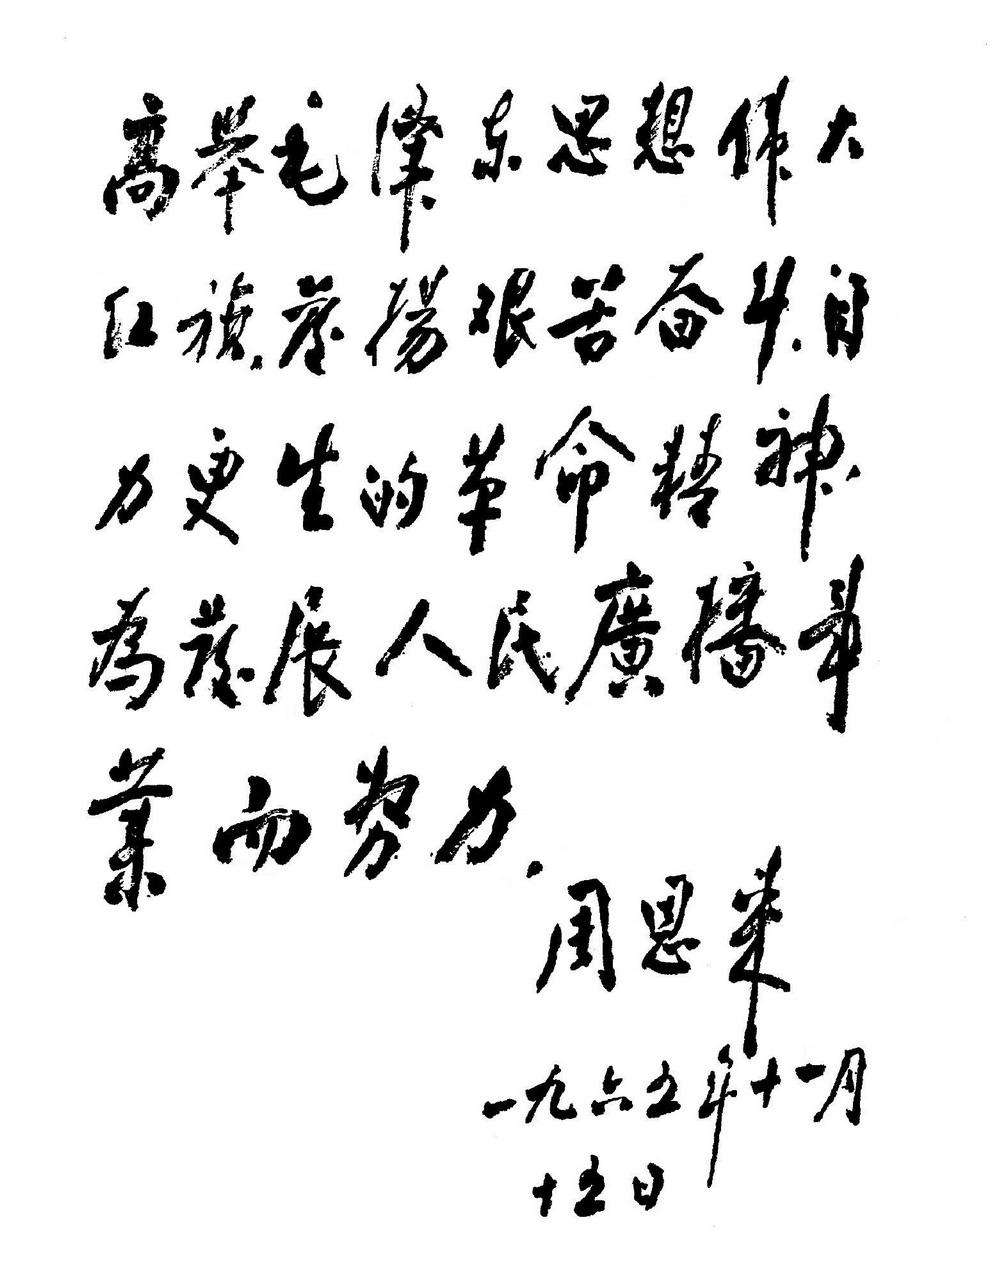 高举毛泽东思想伟大
红旗,發揚艰苦奋斗、自
力更生的革命精神,
為發展人民廣播事
業而努力.
周恩来
一九六五年十一月
十五日